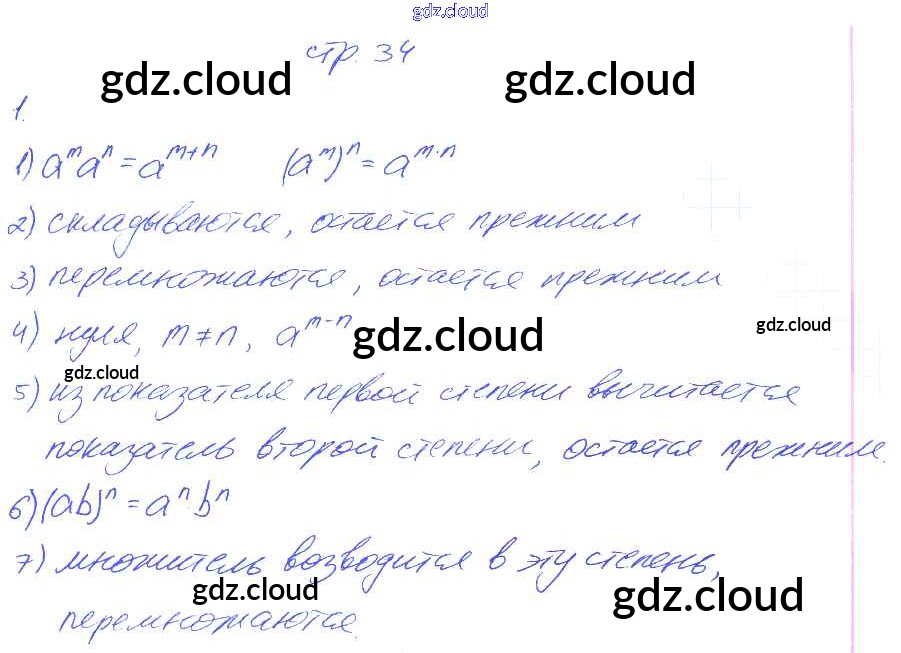 gdz.cloud
стр. 34
gdz.cloud gdz.cloud
1.
1) aᵐaⁿ = aᵐ⁺ⁿ (aᵐ)ⁿ = aᵐ·ⁿ
2) складываются, остается прежним
3) перемножаются, остается прежним
4) нуля, m ≠ n, aᵐ⁻ⁿ gdz.cloud gdz.cloud
gdz.cloud
5) из показателя первой степени вычитается
показатель второй степени, остается прежним.
6) (ab)ⁿ = aⁿ·bⁿ
7) множитель возводится в эту степень,
gdz.cloud gdz.cloud
перемножаются.